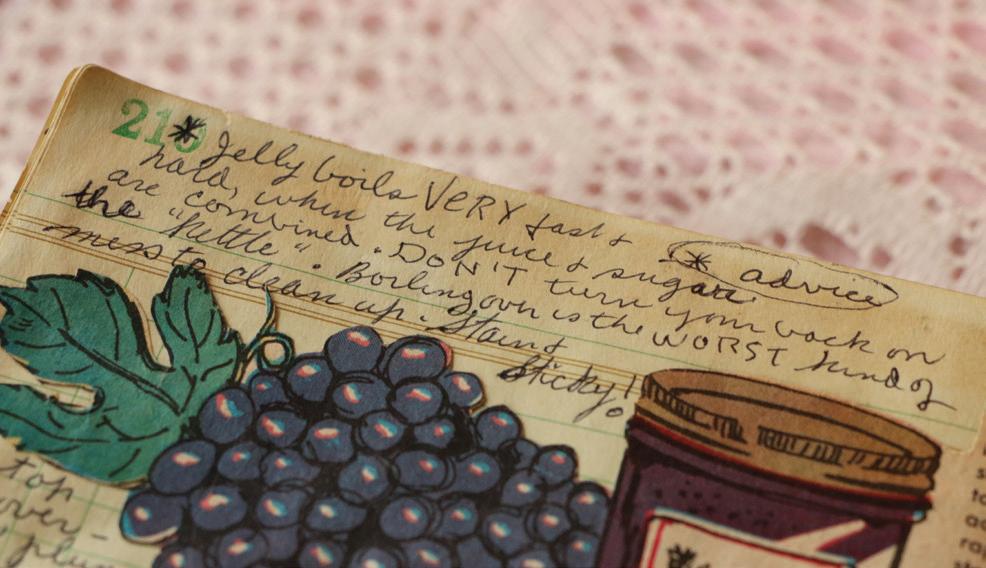 210
* Jelly boils VERY fast &
hard, when the juice & sugar
are combined. DON'T turn your back on
the "Kettle". Boiling over is the WORST kind of
mess to clean up. Stains &
Sticky!
* advice
top
over-
plum